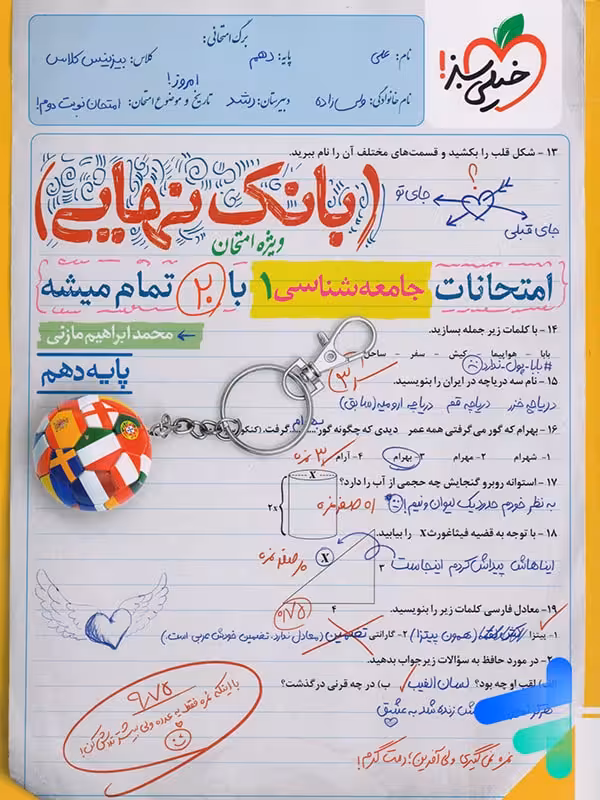 خیلی سبز!
برگ امتحانی:
نام: علی
پایه: دهم
کلاس: بیزینس کلاس
نام خانوادگی: ولی زاده
دبیرستان: رشد
تاریخ و موضوع امتحان: امروز! امتحان نوبت دوم!
۱۳ - شکل قلب را بکشید و قسمت‌های مختلف آن را نام ببرید.
؟
جای تو
جای قبلی
(بانک نهایی)
ویژه امتحان
امتحانات جامعه‌شناسی ۱ با ۲۰ تمام میشه
۱۴ - با کلمات زیر جمله بسازید.
← محمد ابراهیم مازنی
بابا - هواپیما - کیش - سفر - ساحل
#بابا_پول_ندارد
پایه دهم
۱۵ - نام سه دریاچه در ایران را بنویسید.
دریاچه خزر دریاچه قم دریاچه ارومیه (سابق)
۱۶ - بهرام که گور می‌گرفتی همه عمر دیدی که چگونه گور بهرام گرفت.
۱- شهرام ۲- مهرام ۳- بهرام ۴- آرام
۱۷ - استوانه روبرو گنجایش چه حجمی از آب را دارد؟
X
۲X
به نظر خودم حدود یک لیوان و نیم!
۱۸ - با توجه به قضیه فیثاغورث X را بیابید.
ایناهاش پیداش کردم اینجاست
X
۳
۴
۰/۷۵
۱۹- معادل فارسی کلمات زیر را بنویسید.
۱- پیتزا (همون پیتزا) ۲- گارانتی تضمین (معادل ندارد. تضمین خودش عربی است.)
۲- در مورد حافظ به سؤالات زیر جواب بدهید.
الف) لقب او چه بود؟ لسان الغیب ب) در چه قرنی درگذشت؟
زنده شد به عشق
۹/۷۵
نمره نمی‌گیری ولی آفرین؛ دمت گرم!